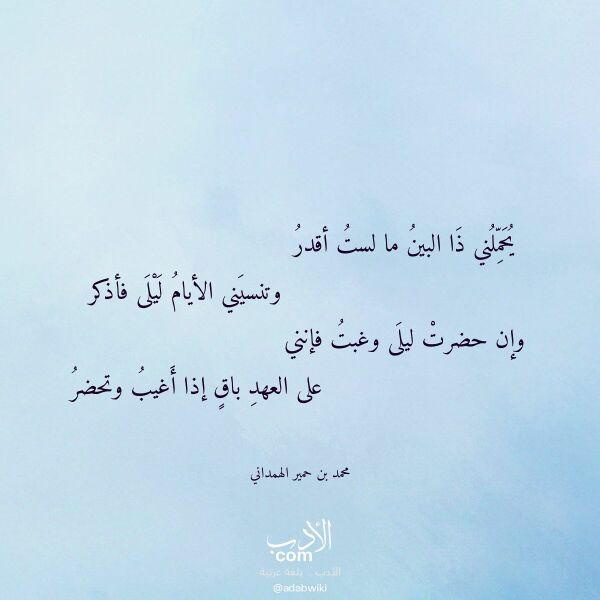 يُحَمِّلُني ذَا البينُ ما لستُ أقدرُ
وتنسيَني الأيامُ لَيْلَى فأذكر
وإن حضرتْ ليلَى وغبتُ فإنني
على العهدِ باقٍ إذا أَغيبُ وتحضرُ
محمد بن حمير الهمداني
الأدب
com
الأدب .. بلغة عربية
@adabwiki